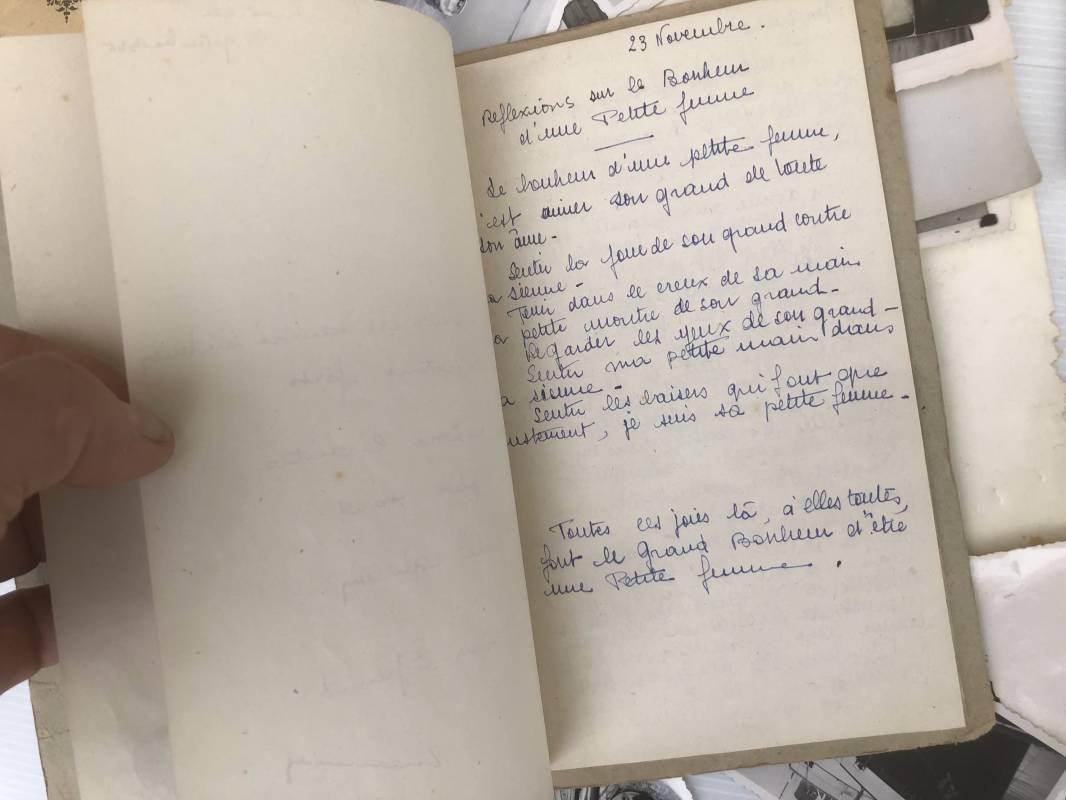 23 Novembre.
Reflexions sur le Bonheur
d'une Petite femme
Le bonheur d'une petite femme,
'est aimer son grand de toute
son âme -
Sentir la joue de son grand contre
a sienne -
Tenir dans le creux de sa main
a petite montre de son grand -
Regarder les yeux de son grand -
Sentir ma petite main dans
a sienne -
Sentir les baisers qui font que
ustement, je suis sa petite femme -
Toutes ces joies là, à elles toutes,
font le grand Bonheur d'être
une Petite femme .